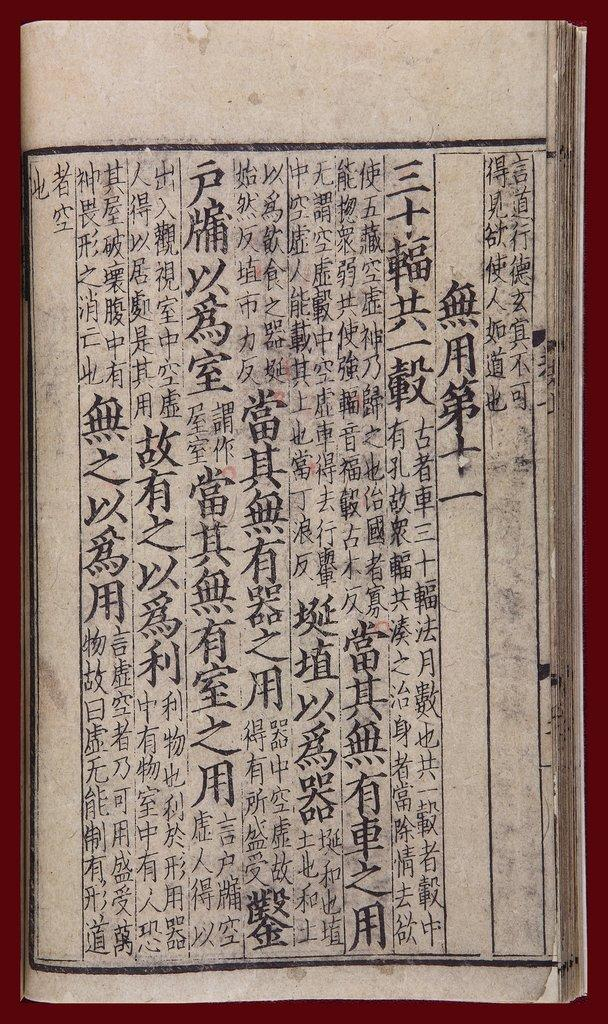 言道行德玄冥不可
得見欲使人如道也
無用第十一
三十輻共一轂
古者車三十輻法月數也共一轂者轂中
有孔故衆輻共湊之治身者當除情去欲
使五藏空虛神乃歸之也治國者寡
能揔衆弱共使強輻音福轂古木反
當其無有車之用
无謂空虛轂中空虛車得去行轝
中空虛人能載其上也當丁浪反
埏埴以爲器
埏和也埴
土也和土
以爲飲食之器埏
始然反埴市力反
當其無有器之用
器中空虛故
得有所盛受
鑿
戶牖以爲室
謂作
屋室
當其無有室之用
言戶牖空
虛人得以
出入觀視室中空虛
人得以居處是其用
故有之以爲利
利物也利於形用器
中有物室中有人恐
其屋破壞腹中有
神畏形之消亡也
無之以爲用
言虛空者乃可用盛受萬
物故曰虛无能制有形道
者空
也